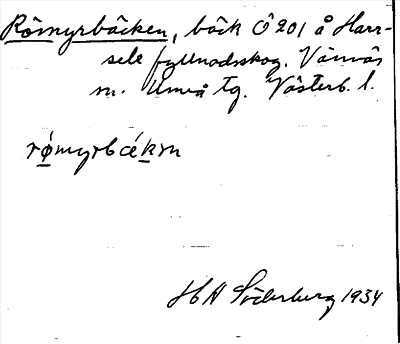 Römyrbäcken, bäck Ö 201 å Harr-
sele fyllnadsskog. Vännäs
sn. Umeå tg. Västerb. l.
rǿmyrbǽkɱ
H A Söderberg 1934